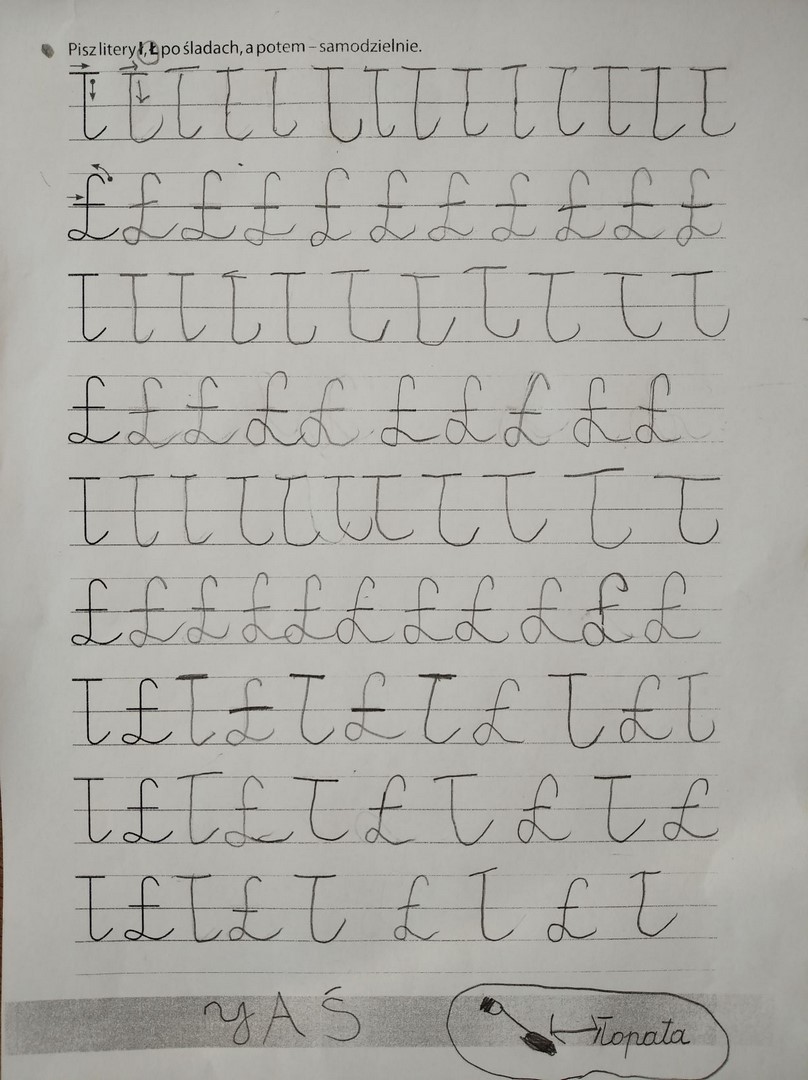 Pisz litery ł, Ł po śladach, a potem – samodzielnie.
ł ł ł ł ł ł ł ł ł ł ł ł ł ł
Ł Ł Ł Ł Ł Ł Ł Ł Ł Ł Ł
ł ł ł ł ł ł ł ł ł ł ł
Ł Ł Ł Ł Ł Ł Ł Ł Ł Ł
ł ł ł ł ł ł ł ł ł ł ł
Ł Ł Ł Ł Ł Ł Ł Ł Ł Ł Ł
ł Ł ł Ł ł Ł ł Ł ł Ł ł
ł Ł ł Ł ł Ł ł Ł ł Ł
ł Ł ł Ł ł Ł ł Ł ł
yAŚ
łopata